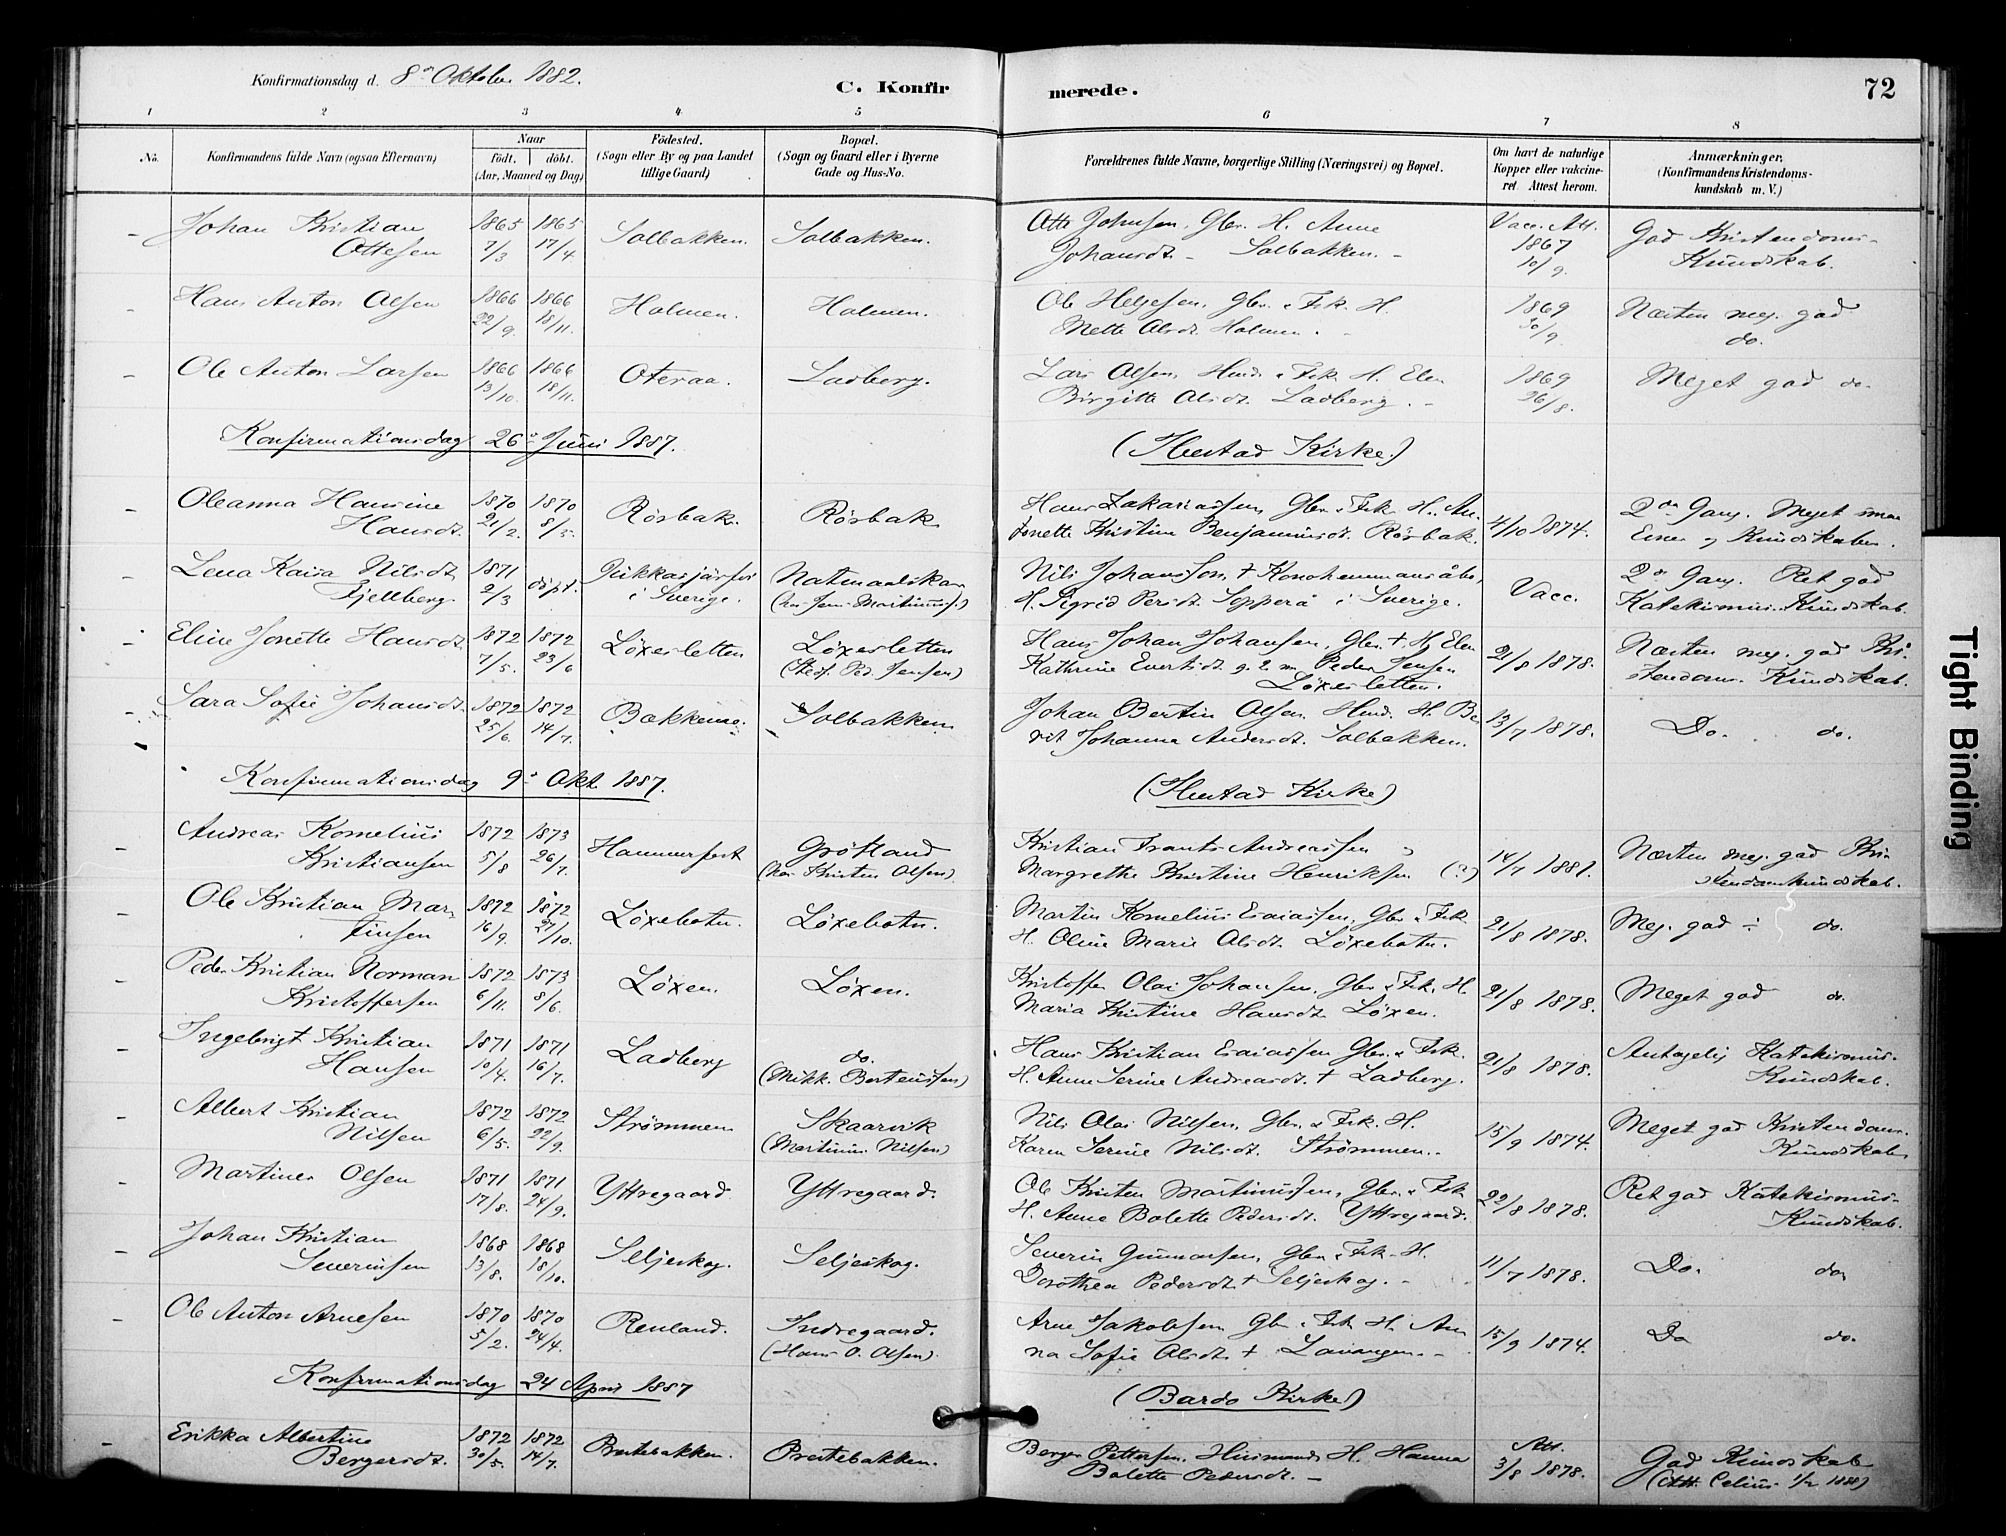 Konfirmationsdag d. 8de Oktober 1882. C. Konfir merede. 72
1 2 3 4 5 6 7 8
No. Konfirmandens fulde Navn (ogsaa Efternavn) Naar födt. döbt. (Aar, Maaned og Dag)
Födested. (Sogn eller By og paa Landet tillige Gaard)
Bopæl. (Sogn og Gaard eller i Byerne Gade og Hus-No.
Forældrenes fulde Navne, borgerlige Stilling (Næringsvei) og Bopæl.
Om havt de naturlige Kopper eller vakcineret Attest herom.
Anmærkninger. (Konfirmandens Kristendomskundskab m. V.)
Johan Kristian 1865 1865 Solbakken. Solbakken. Otto Johnsen, Gbr. H. Anne Vacc. Att. God Kristendoms-
Ottesen 7/3 17/4. Johansdt. - Solbakken. - 1867 10/9. Kundskab.
Hans Anton Olsen 1866 1866 Holmen. Holmen. Ole Helgesen, Gbr. & Fsk. H. 1869 Næsten meg. god
22/9. 18/11. Mette Olsdt. Holmen. 30/9. do.
Ole Anton Larsen 1866 1866 Oteraa. Ladberg. Lars Olsen, Hmd. & Fsk. H. Elen 1869 Meget god do.
13/10. 18/11. Birgitte Olsdt. Ladberg. - 26/8.
Konfirmationsdag 26de Juni 1887. (Ibestad Kirke.)
Oleanna Hansine 1870 1870 Rösbak. Rösbak Hans Zakariassen Gbr. & Fsk. H. An- 4/10 1874. 2den Gang. Meget smaa
Hansdt. 21/2. 8/5. tonette Kristine Benjaminsdt. Rösbak. Evner og Kundskaber.
Lena Kaisa Nilsdt. 1871 döpt. Jukkasjärfvi Nils Johansson, + 2den Gang. Ret god
Fjellberg. 2/3 i Sverige. (hos Jens Martinus.) H. Sigrid Persdt. Sopperå i Sverige. Vacc. Katekismus-Kundskab.
Eline Jonette Hansdt. 1872 1872 Löxesletten Löxesletten Hans Johan Johansen, Gbr. +, H. Elen 21/8 1878. Næsten meg. god Kri-
7/5. 23/6 (Stedf. Ped. Jensen) Kathrine Evertsdt. g. 2. m. Peder Jensen stendoms Kundskab.
Löxesletten.
Sara Sofie Johansdt. 1872 1872 Bakkene. Solbakken Johan Bertin Olsen Hmd. H. Be- 13/7 1878. Do. do.
25/6. 14/7. rit Johanna Andersdt. Solbakken.
Konfirmationsdag 9de Okt. 1887. (Ibestad Kirke)
Andreas Kornelius 1872 1873 Hammerfest Grötland Kristian Frants Andreassen 14/7 1881. Næsten meg. god Kri-
Kristiansen 5/8 26/7. (hos Kristen Olsen). Margrethe Kristine Henriksen (?) stendomskundskab.
Ole Kristian Mar- 1872 1872 Löxebotn. Löxebotn. Martin Kornelius Esaiassen, Gbr. & Fsk. 21/8 1878. Meg. god ÷ do.
tinsen 16/9. 27/10. H. Oline Marie Olsdt. Löxebotn.
Peder Kristian Norman 1872 1873 Löxen. Löxen. Kristoffer Olai Johansen, Gbr. & Fsk. H. 21/8 1878. Meget god do.
Kristoffersen 6/11. 8/6. Maria Kristine Hansdt. Löxen.
Ingebrigt Kristian 1871 1871 Ladberg do. Hans Kristian Esaiassen Gbr. & Fsk. 21/8 1878. Antagelig Katekismus-
Hansen 10/4. 16/7. (Mikk. Berteussen) H. Anne Serine Andreasdt. + Ladberg. Kundskab.
Albert Kristian 1872 1872 Strömmen Skaarvik Nils Olai Nilsen, Gbr. & Fsk. H. 15/9 1874. Meget god Kristendoms-
Nilsen 6/5. 22/9. (Martinus Nilsen) Karen Serine Nilsdt. Strömmen. Kundskab.
Martines Olsen 1871 1871 Yttregaard. Yttregaard. Ole Kristen Martinussen, Gbr. & Fsk 22/8 1878. Ret god Katekismus-
17/8. 24/9. H. Anne Bolette Pedersdt. Yttregaard. Kundskab.
Johan Kristian 1868 1868 Seljeskog. Seljeskog. Severin Gunnarsen, Gbr. & Fsk. H. 11/7 1878. Do. do.
Severinsen 13/8. 18/10. Dorothea Pedersdt. + Seljeskog. -
Ole Anton Arnesen 1870 1870 Renland. Indregaard. Arne Jakobsen Gbr. & Fsk. H. An- 15/9 1874. Do do.
5/2. 24/4. (Hans O. Olsen). na Sofie Olsdt. + Lavangen. -
Konfirmationsdag 24 April 1887 (Bardo Kirke)
Erikka Albertine 1872 1872 Prestebakken. Prestebakken. Berger Pettersen, Husmand H. Hanna Att. God Kundskab
Bergersdt. 30/5. 14/7. Bolette Pedersdt. - 3/8 1878. (Att. Celius 1/2 1888)
Tight Binding